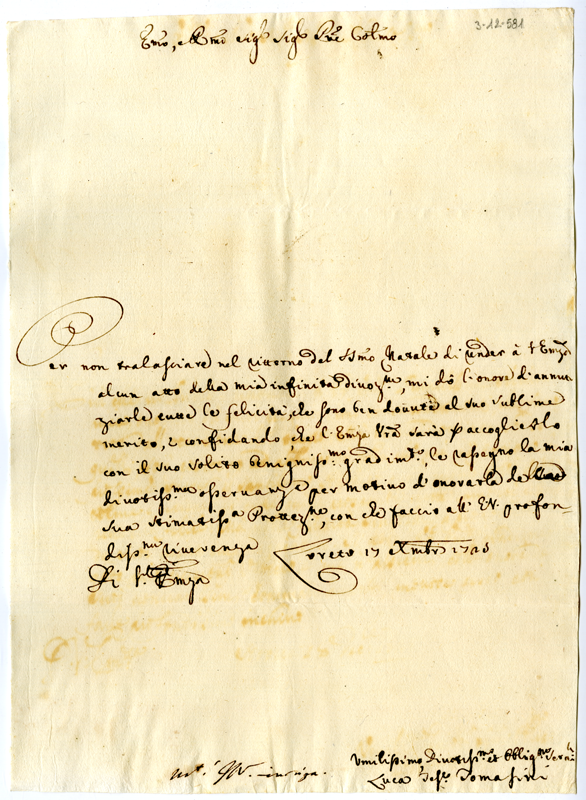 3-12-581
Emo, e Rmo Sigr Sigr Pne Colmo
Per non tralasciare nel rittorno del SSmo Natale di render à V. Emza
alcun atto della mia infinita divozne, mi dò l'onore d'annun
ziarle tutte le felicità, che sono ben dovute al suo sublime
merito, e confidando, che l'Emza Vra sarà p accoglierlo
con il suo solito benignissmo gradimto, le rassegno la mia
divotissma osservanza per motivo d'onorarla della
sua stimatissa Protezne, con che faccio all' E.V. profon-
dissma riverenza
Loreto 17 Xmbre
Di V. Emza
Umilissimo Divotissmo et Obligmo Serre
Luca Tomasini